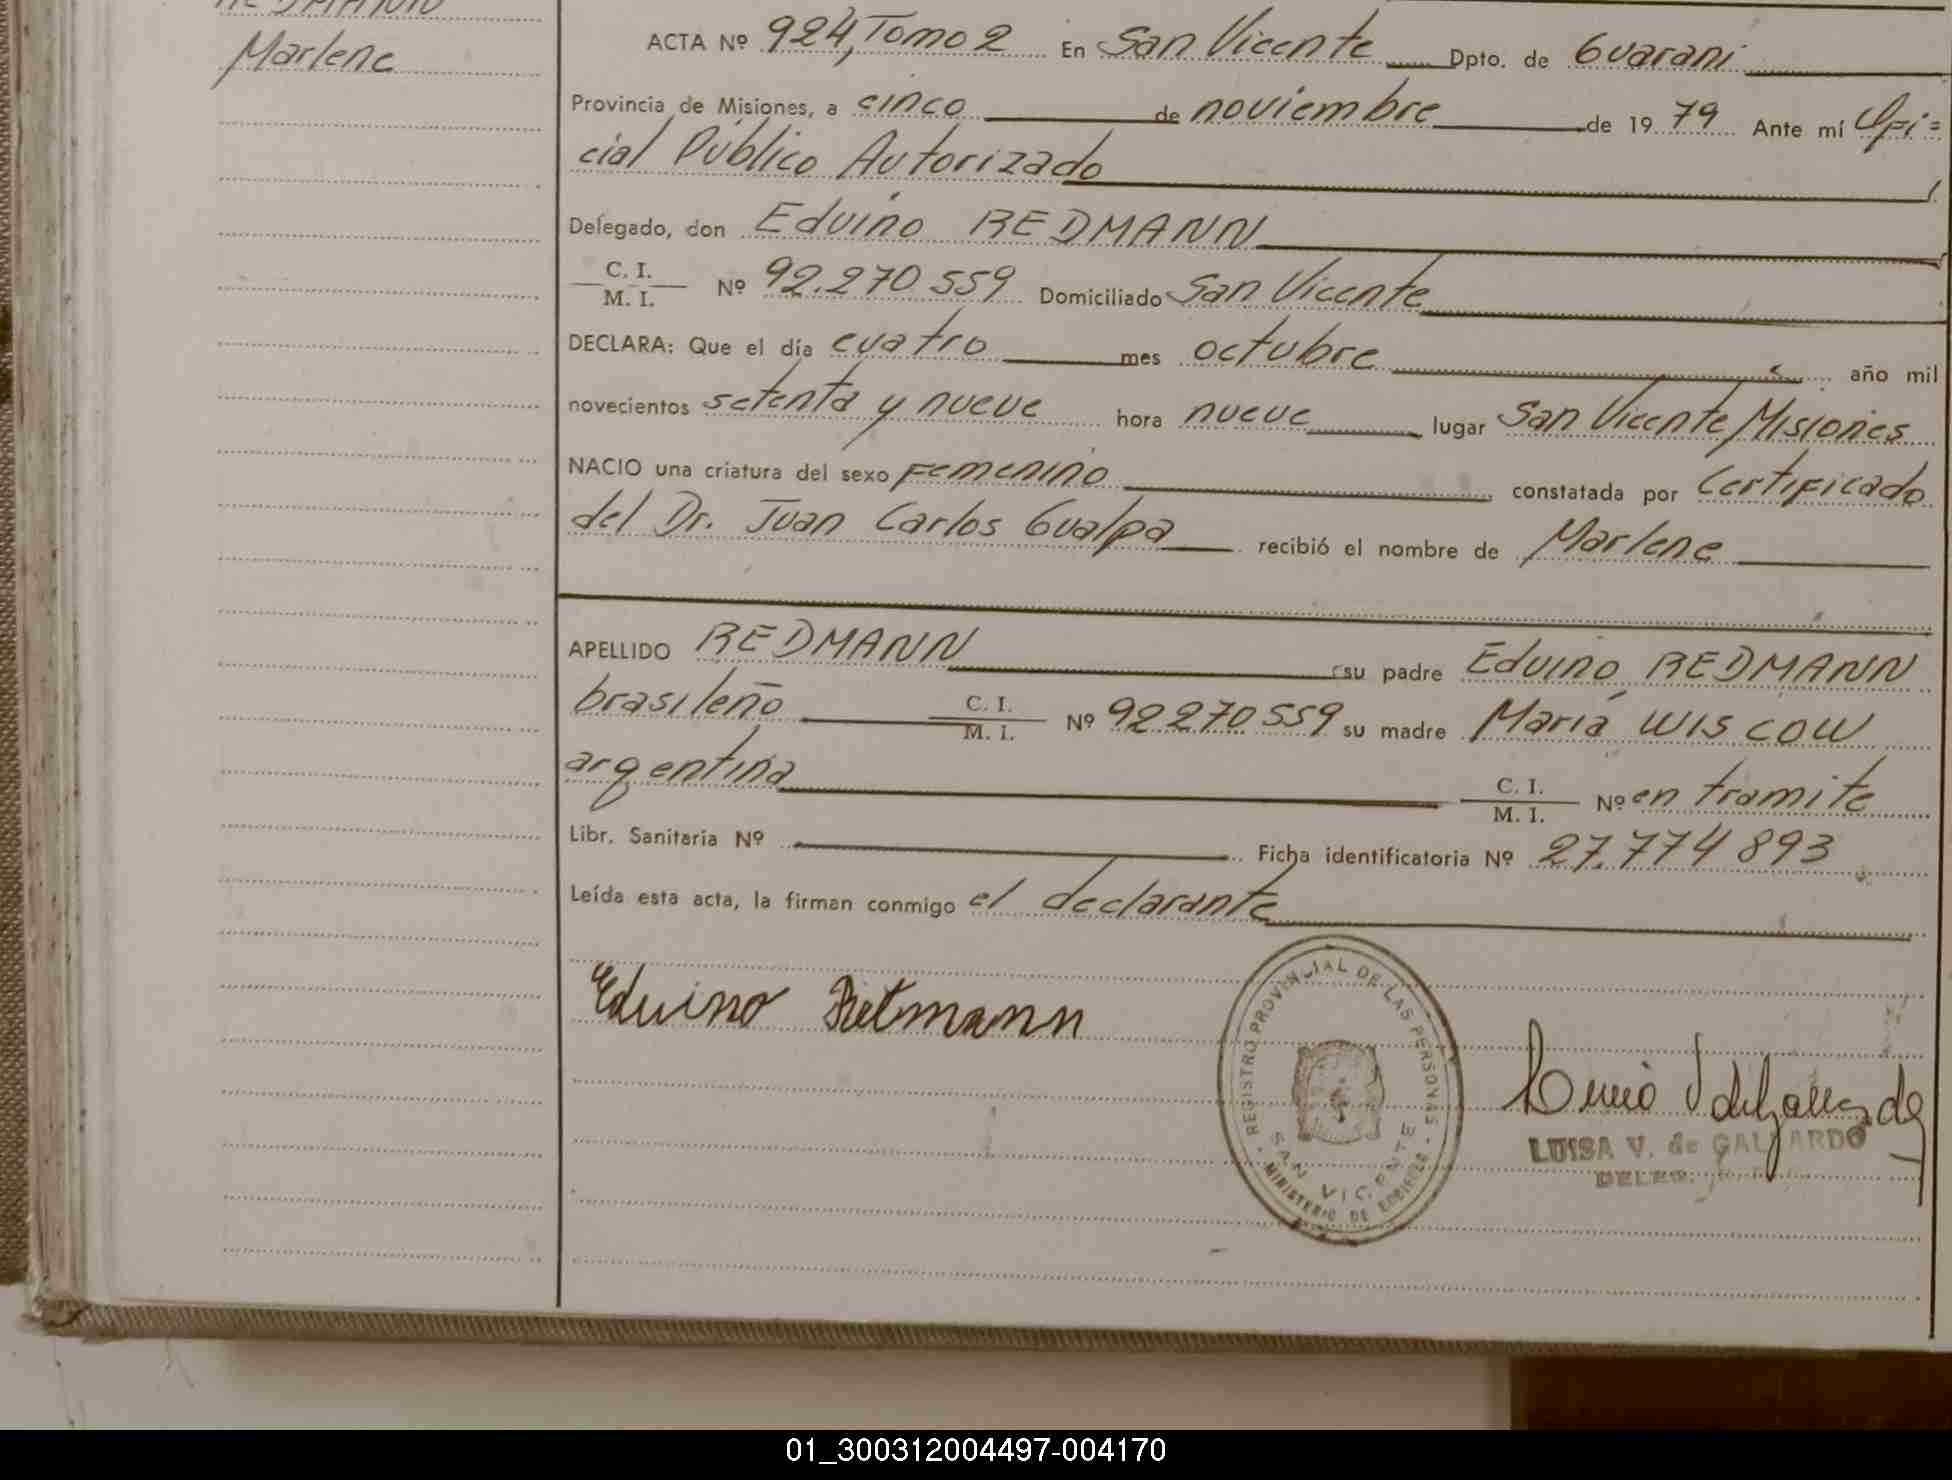 REDMANN
Marlene
ACTA Nº 924, Tomo 2 En San Vicente Dpto. de Guarani
Provincia de Misiones, a cinco de noviembre de 1979 Ante mí Ofi=
cial Público Autorizado
Delegado, don Eduino REDMANN
C. I.
M. I. Nº 92.270.559 Domiciliado San Vicente
DECLARA: Que el día cuatro mes octubre año mil
novecientos setenta y nueve hora nueve lugar San Vicente, Misiones
NACIO una criatura del sexo Femenino constatada por Certificado
del Dr. Juan Carlos Gualpa recibió el nombre de Marlene
APELLIDO REDMANN su padre Eduino REDMANN
brasileño C. I. M. I. Nº 92.270.559 su madre María WISCOW
argentina C. I. M. I. Nº en tramite
Libr. Sanitaria Nº Ficha identificatoria Nº 27.774.893
Leída esta acta, la firman conmigo el declarante
Eduino
REGISTRO PROVINCIAL DE LAS PERSONAS
SAN VICENTE
MINISTERIO DE GOBIERNO
LUISA V. de GALLARDO
01_300312004497-004170